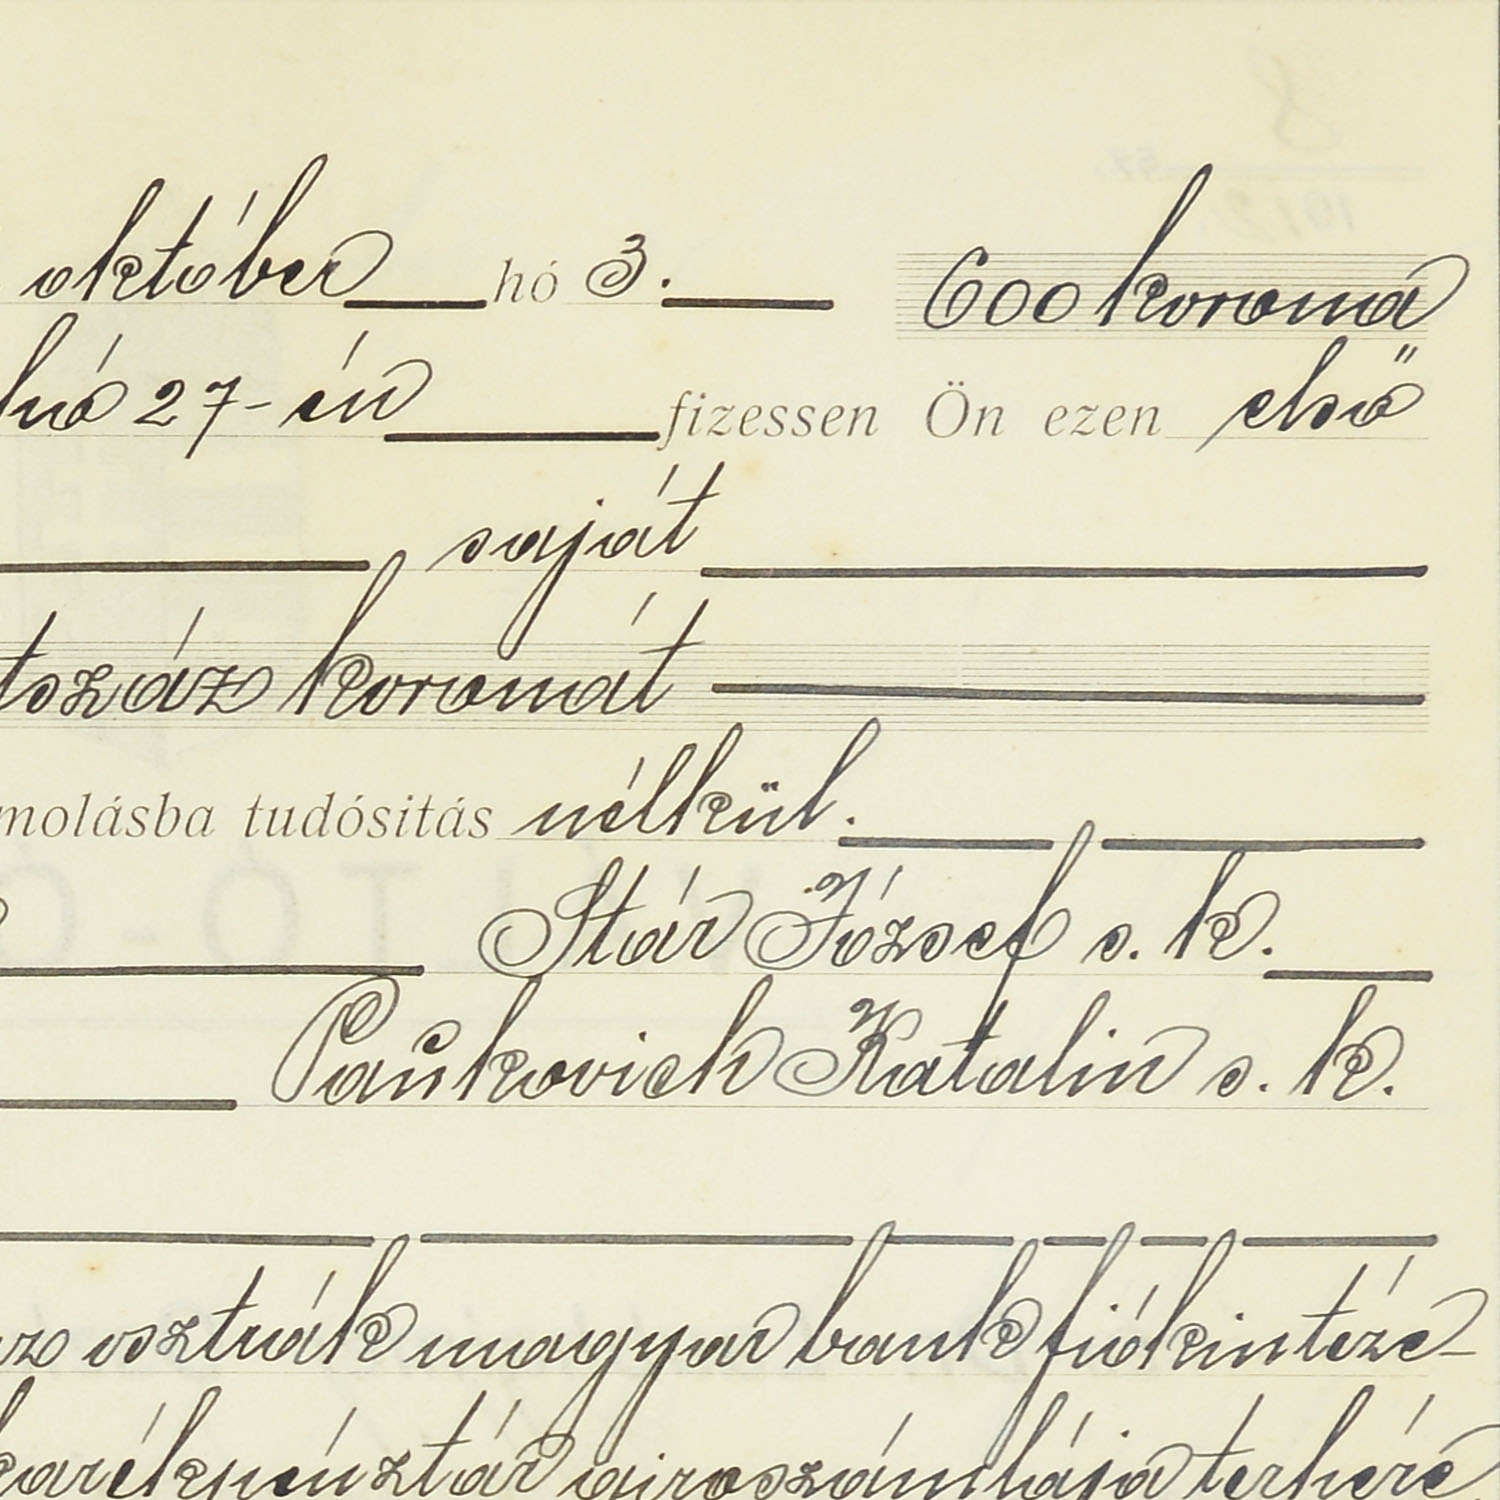 október hó 3. 600 korona
hó 27-én fizessen Ön ezen első
saját
tszáz koronát
molásba tudósitás nélkül.
Stár József s. k.
Paukovich Katalin s. k.
az osztrák magyar bank fiókintézé-
karékpénztár giroszámlája terhére